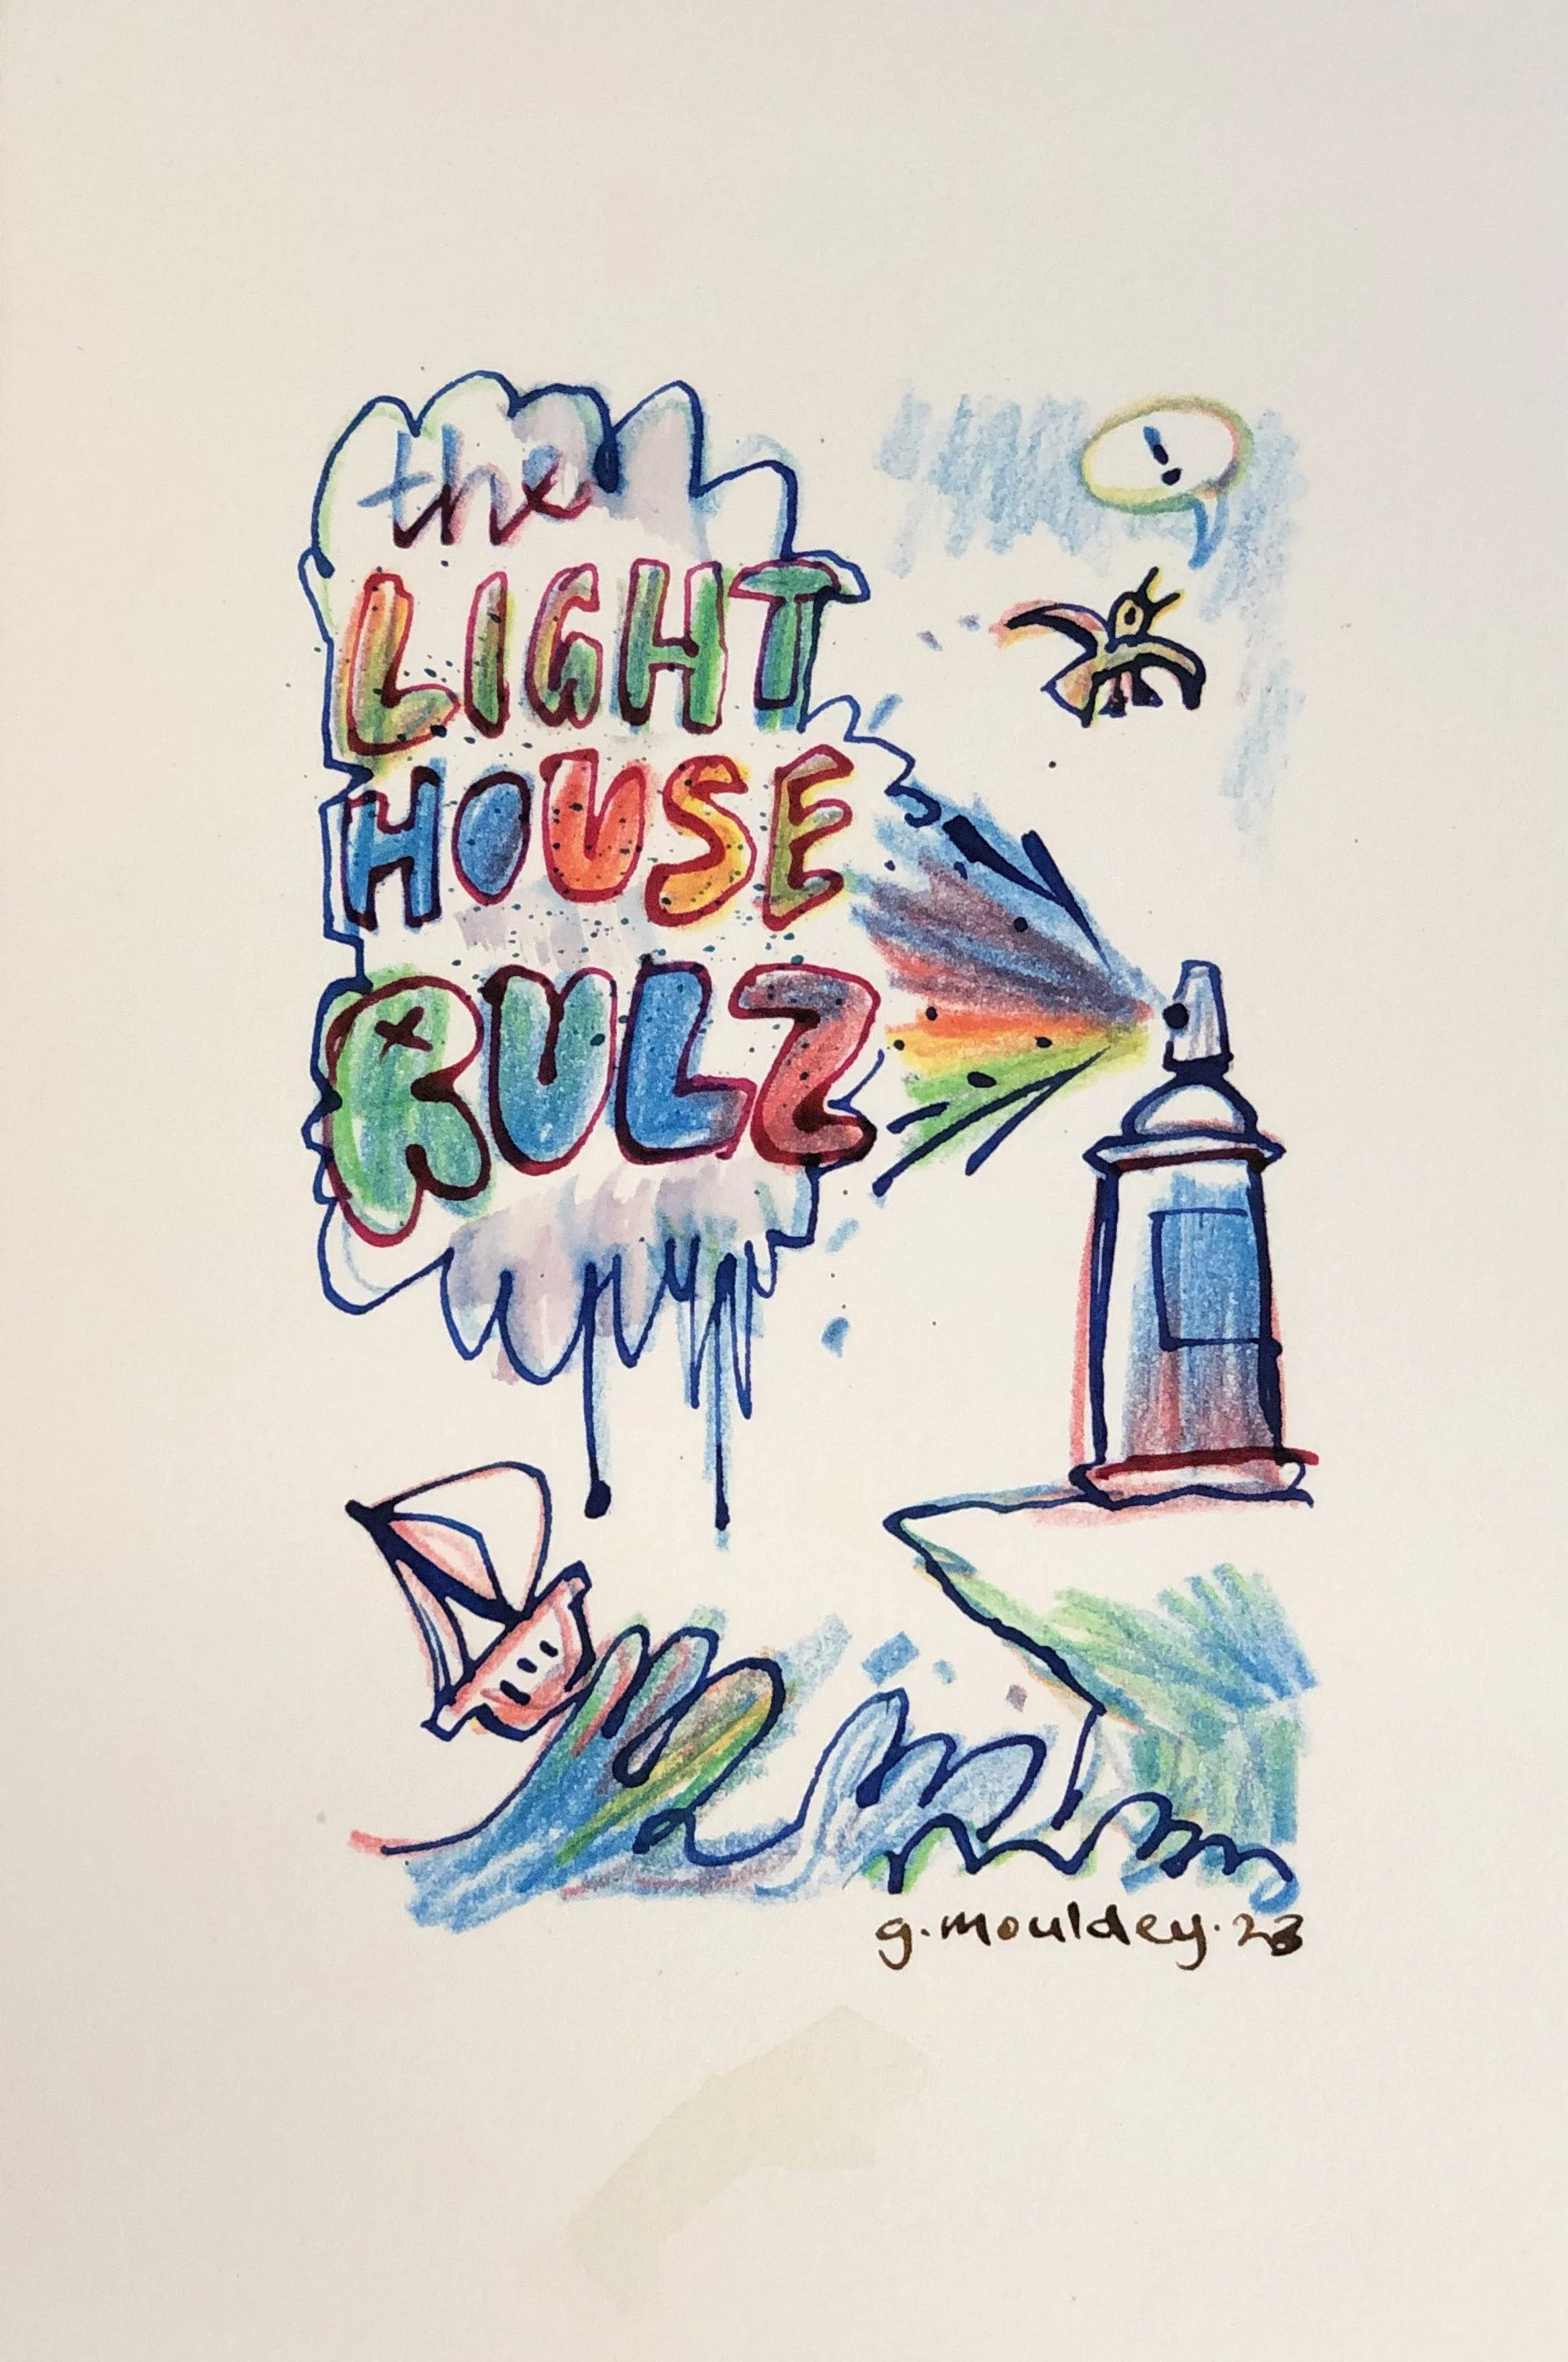 the
LIGHT
HOUSE
RULZ
!
g.mouldey.23